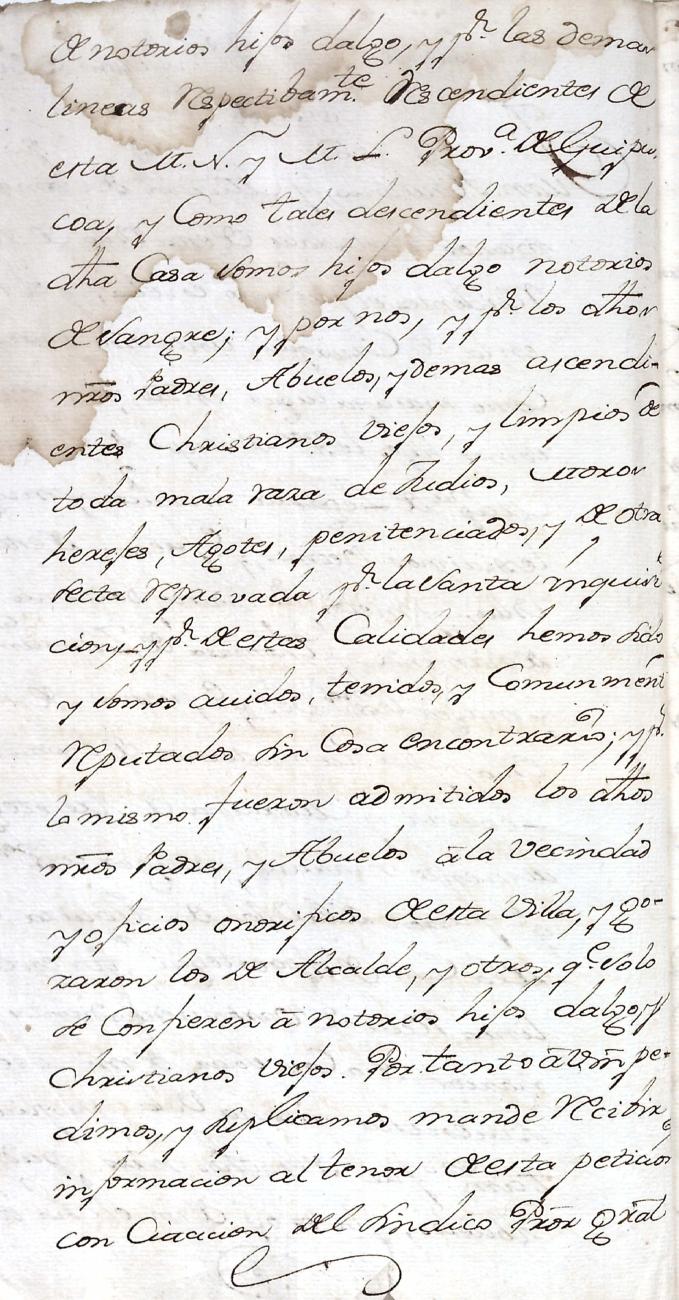 de notorios hijos dalgo, y pr. las demas
lineas respectibamte. descendientes de
esta M. N. y M. L. Prova. de Guipu,
coa, y Como tales descendientes de la
dha Casa somos hijos dalgo notorios
de sangre; y por nos, y pr. los dhos
nros Padres, Abuelos, y demas ascendi-
entes Christianos viejos, y limpios de
toda mala raza de Judios, Moros
herejes, Agotes, penitenciados, y de otra
secta reprovada pr. la Santa inquisi
cion, y pr. de estas Calidades hemos sido
y somos auidos, tenidos, y Comunmente
reputados sin Cosa encontrario; y pr.
lo mismo fueron admitidos los dhos
nros Padres, y Abuelos à la vecindad
y oficios onorificos de esta Villa, y go-
zaron los de Alcalde, y otros, qe. solo
se Confieren à notorios hijos dalgo, y
Christianos viejos. Por tanto à Vm pe-
dimos, y suplicamos mande recibir
informacion al tenor de esta peticion
con Citacion del Sindico Pror gral